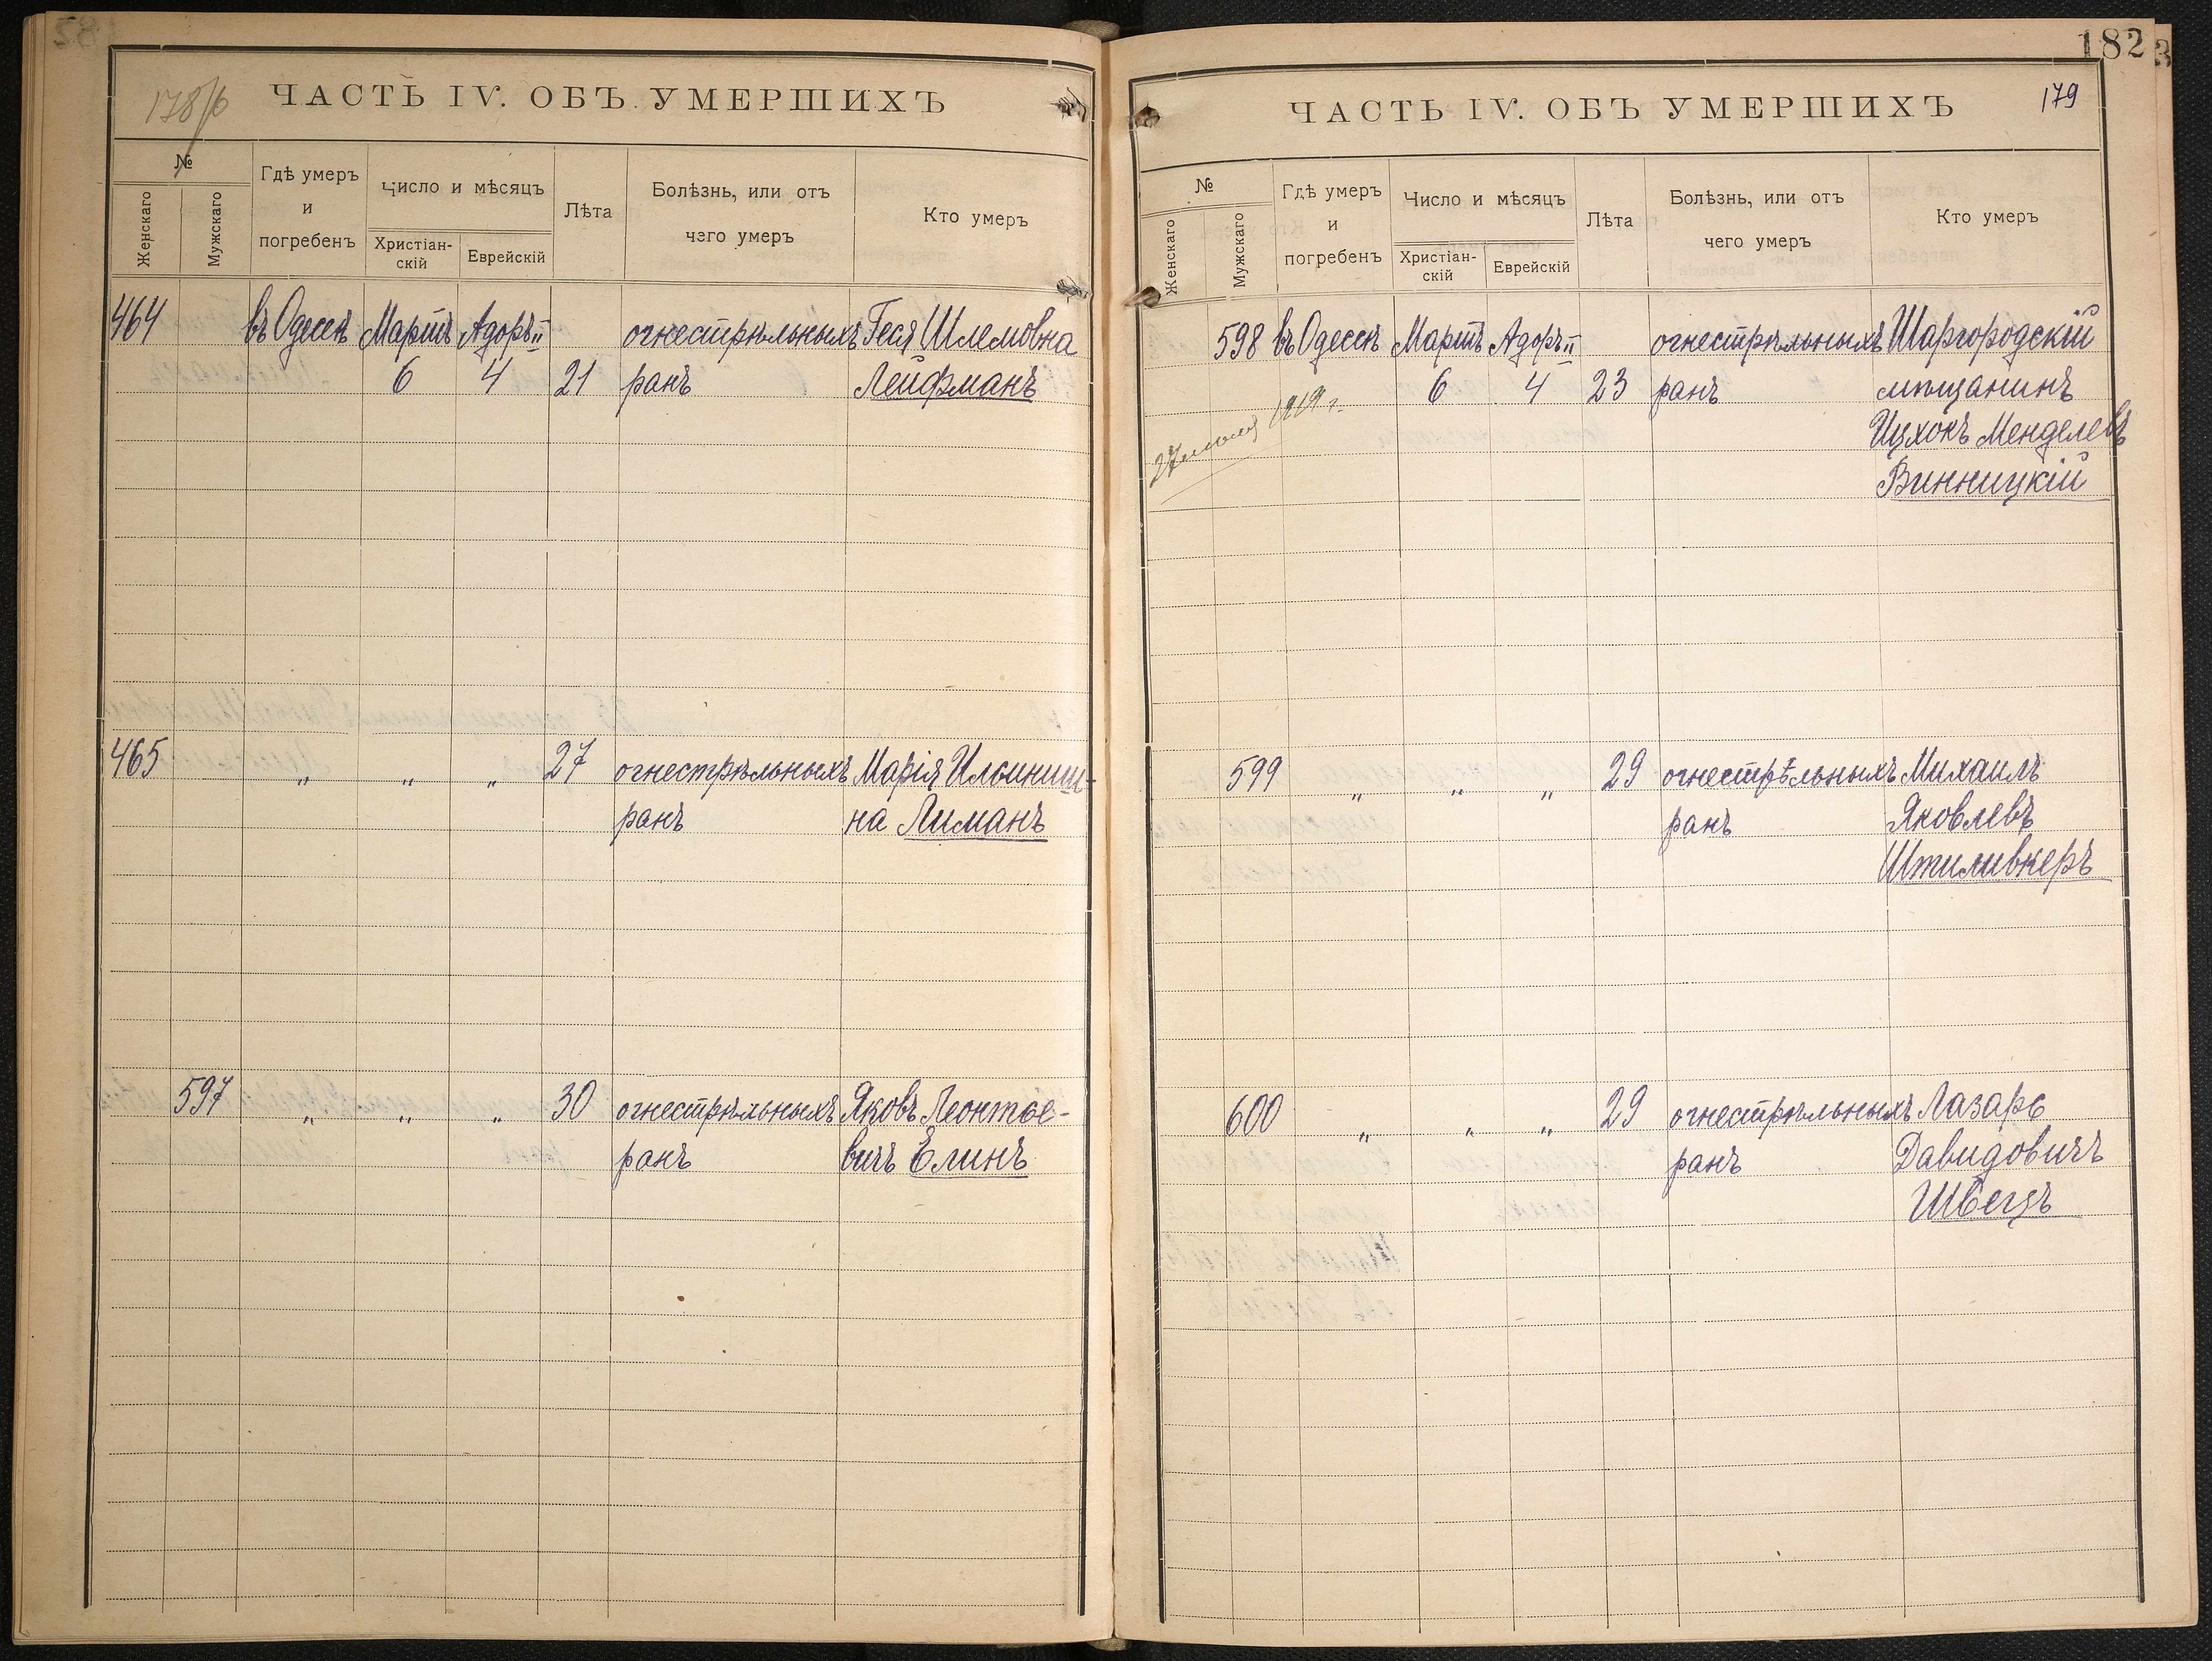 178/б
ЧАСТЬ IV. ОБЪ УМЕРШИХЪ
№
Женскаго
Мужскаго
Гдѣ умеръ
и
погребенъ
Число и мѣсяцъ
Христіан-
скій
Еврейскій
Лѣта
Болѣзнь, или отъ
чего умеръ
Кто умеръ
464 въ Одессѣ Мартъ Адоръ II огнестрѣльныхъ Геся Шлемовна
6 4 21 ранъ Лейфманъ
465 „ „ „ 27 огнестрѣльныхъ Марія Ильинич-
ранъ на Лиманъ
597 „ „ „ 30 огнестрѣльныхъ Яковъ Леонтье-
ранъ вичъ Елинъ
182
179
ЧАСТЬ IV. ОБЪ УМЕРШИХЪ
№
Женскаго
Мужскаго
Гдѣ умеръ
и
погребенъ
Число и мѣсяцъ
Христіан-
скій
Еврейскій
Лѣта
Болѣзнь, или отъ
чего умеръ
Кто умеръ
598 въ Одессѣ Мартъ Адоръ II огнестрѣльныхъ Шаргородскій
6 4 23 ранъ мѣщанинъ
1919 г.
Ицхокъ Менделевъ
Винницкій
599 „ „ „ 29 огнестрѣльныхъ Михаилъ
ранъ Яковлевъ
Штиливкеръ
600 „ „ „ 29 огнестрѣльныхъ Лазарь
ранъ Давидовичъ
Швецъ